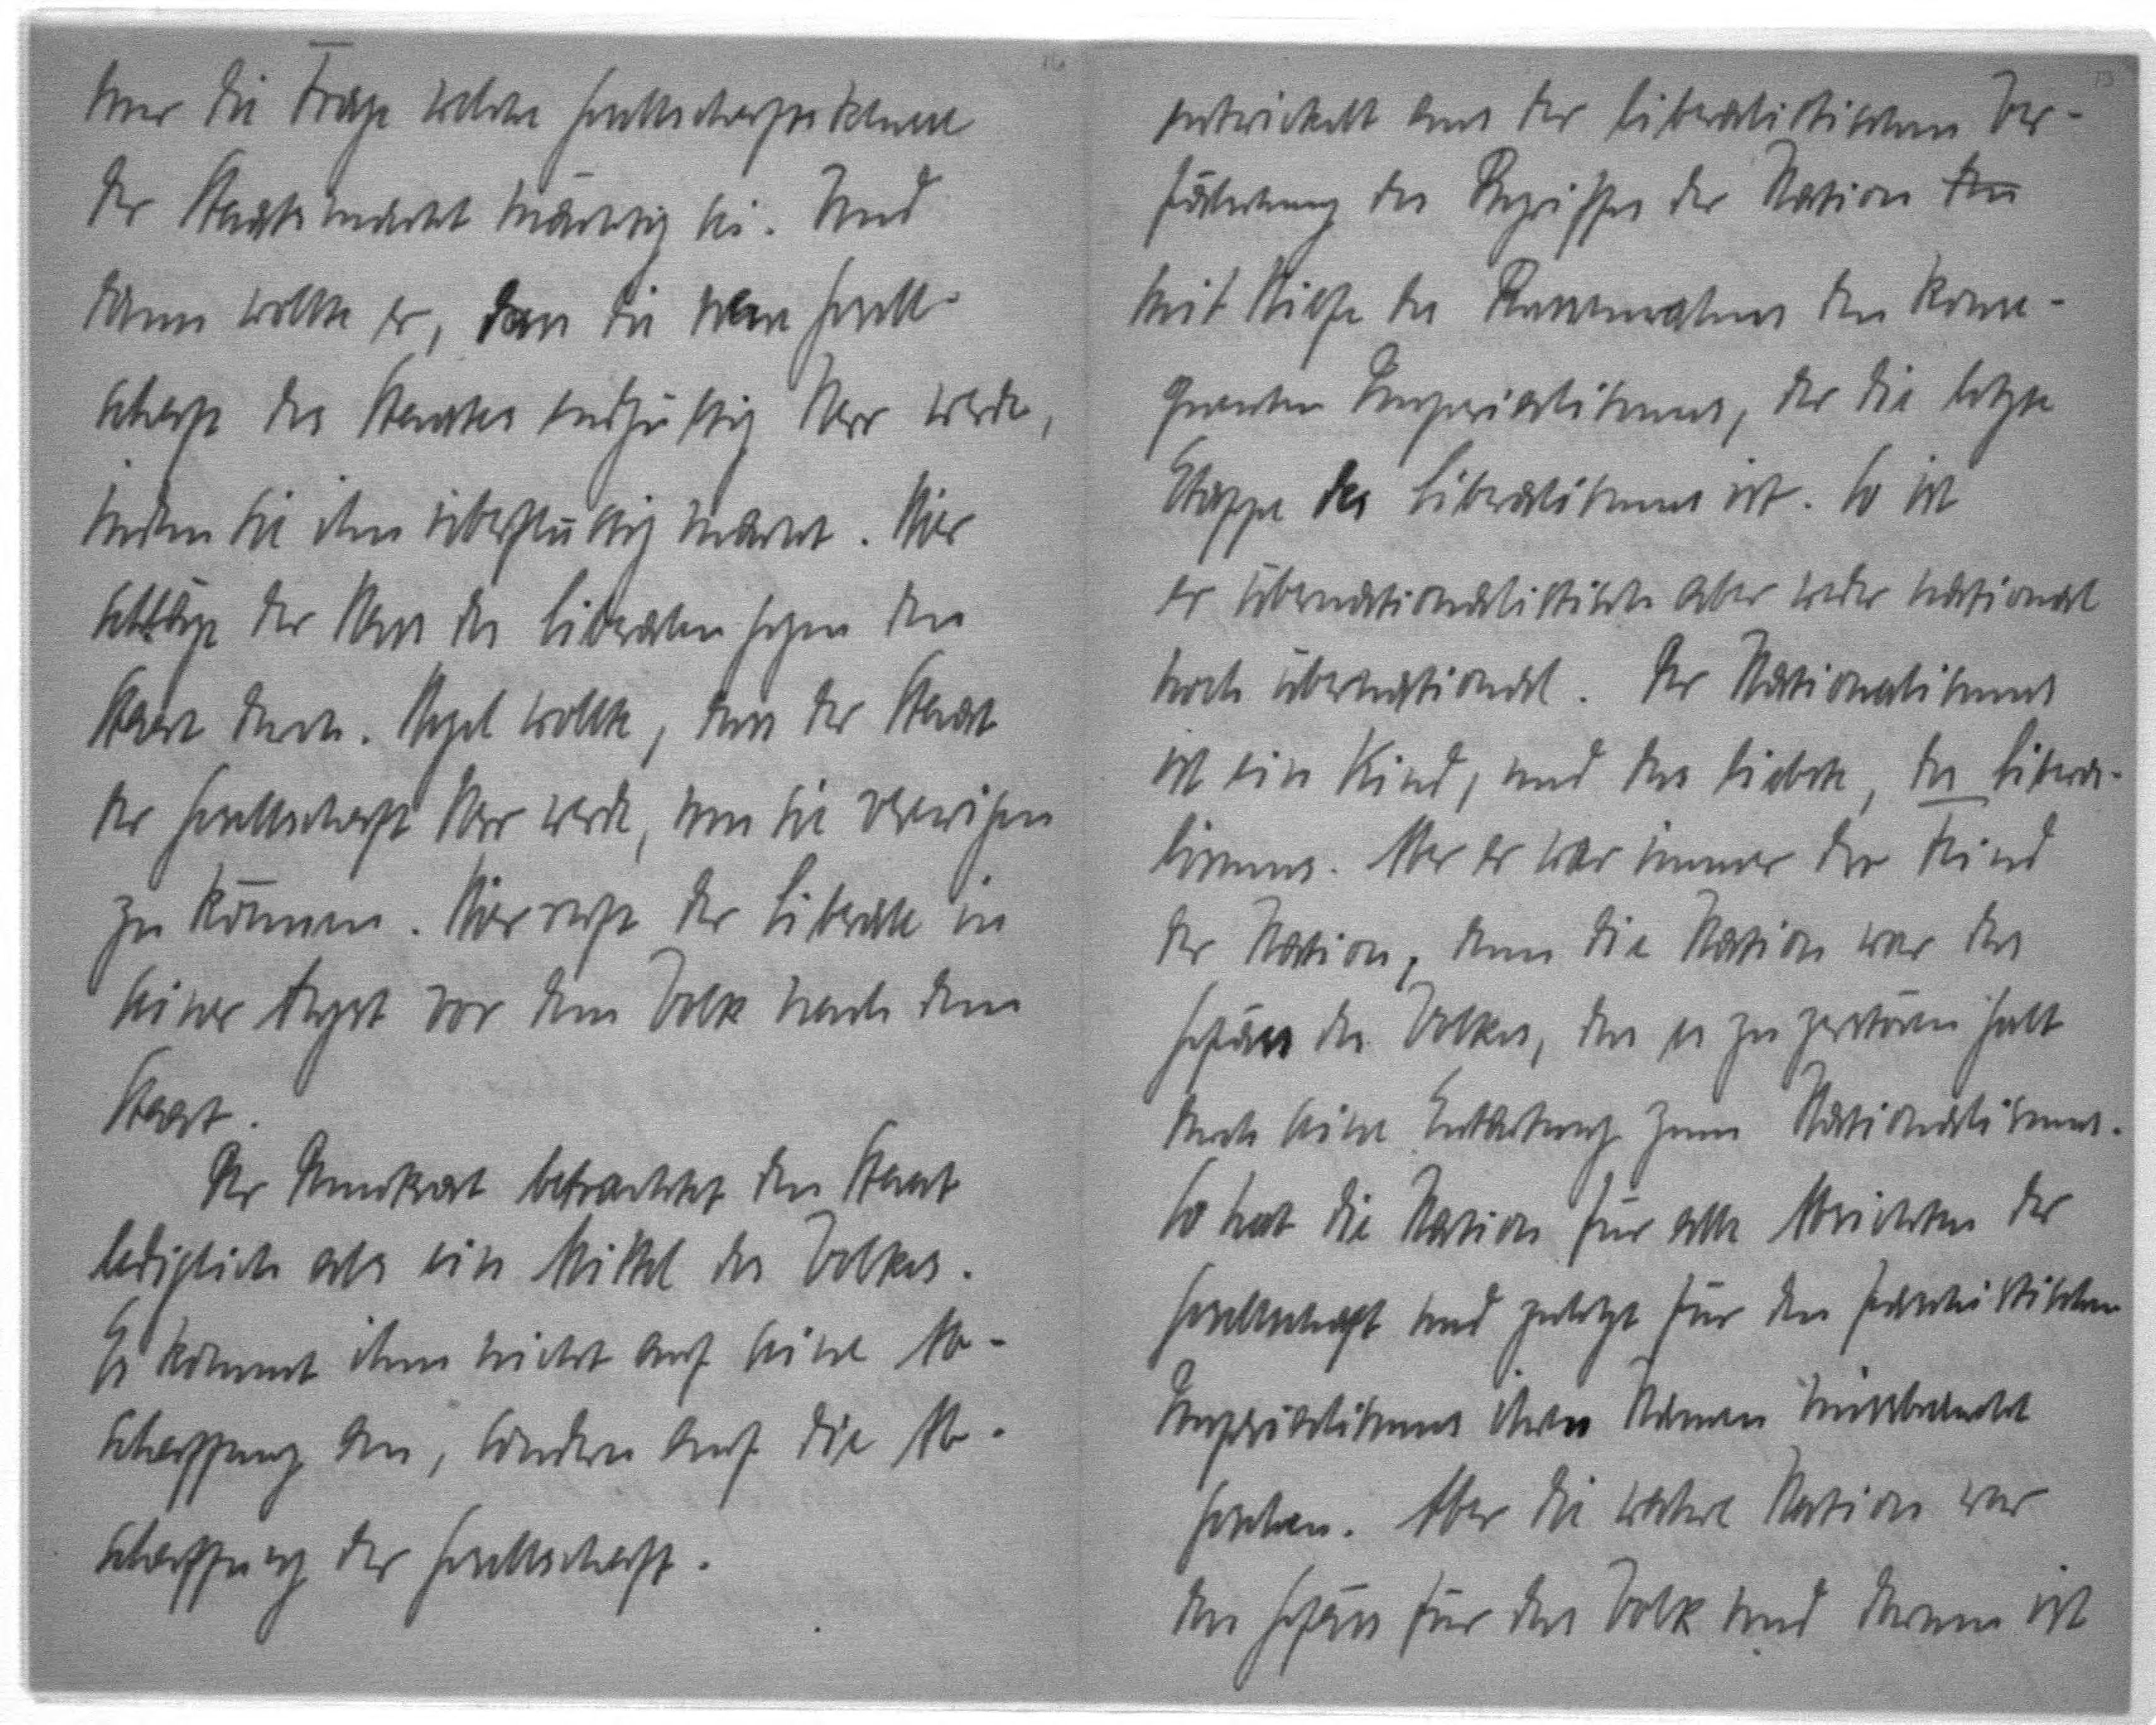 nur die Frage welche Gesellschaftsklasse
der Staatsmacht mächtig sei. Und
dann wollte er, dass die neue Gesell-
schaft des Staates endgültig Herr werde,
indem sie ihn überflüssig macht. Hier
schlägt der Hass des Liberalen gegen den
Staat durch. Hegel wollte, dass der Staat
der Gesellschaft Herr werde, um sie
zu können. Hier ruft der Liberale in
seiner Angst vor dem Volk nach dem
Staat.
Der Demokrat betrachtet den Staat
lediglich als ein Mittel des Volkes.
Es kommt ihm nicht auf seine Ab-
schaffung an, sondern auf die Ab-
schaffung der Gesellschaft.
entwickelt aus der liberalistischen Ver-
fälschung des Begriffes der Nation
mit Hilfe des Rassenwahns den konse-
quenten Imperialismus, der die letzte
Etappe des Liberalismus ist. So ist
er übernationalistisch aber weder national
noch übernational. Der Nationalismus
ist ein Kind, und das liebste, des Libera-
lismus. Aber er war immer der Feind
der Nation, denn die Nation war das
Gefäss des Volkes, das es zu zerstören galt
durch seine Entartung zum Nationalismus.
So hat die Nation für alle Absichten der
Gesellschaft und zuletzt für den faschistischen
Imperialismus ihren Namen missbraucht
gesehen. Aber die wahre Nation war
das Gefäss für das Volk und darum ist